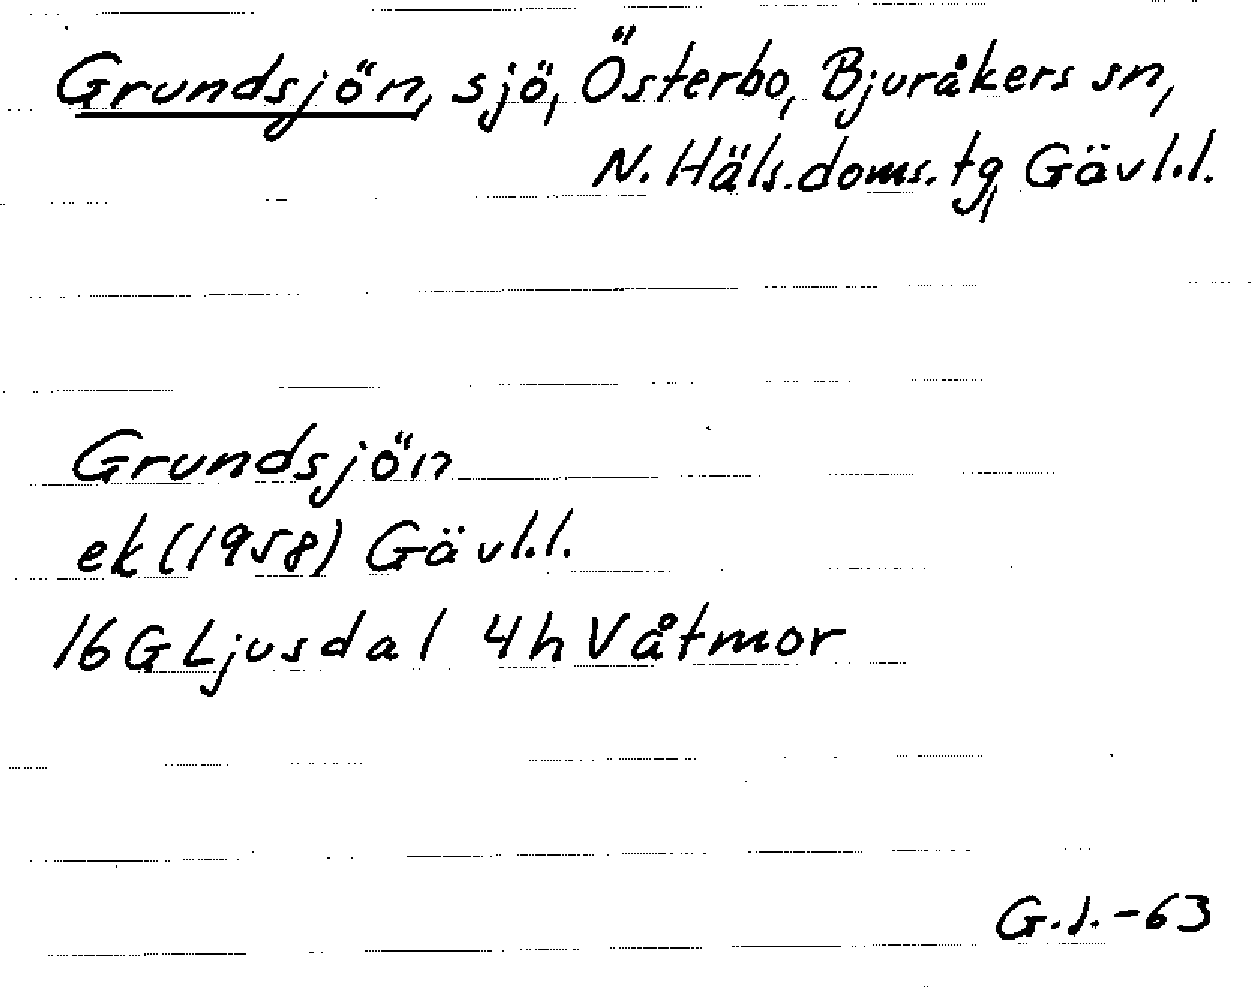 Grundsjön, sjö, Österbo, Bjuråkers sn,
N. Häls. doms. tg, Gävl. l.
Grundsjön
ek (1958) Gävl. l.
16 G Ljusdal 4 h Våtmor
G. J. -63